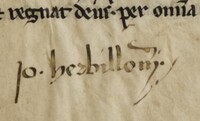 t regnat deus. per omnia
jo. herbillon.